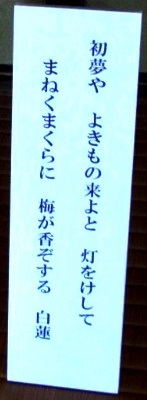 初夢や　よきもの来よと　灯をけして
まねくまくらに　梅が香ぞする　白蓮